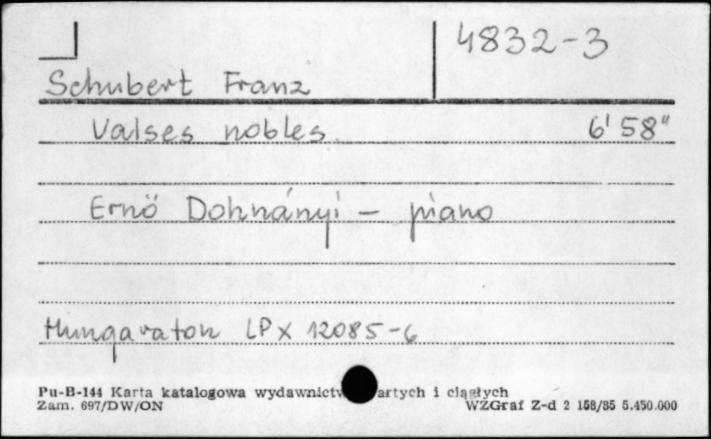 4832-3
Schubert Franz
Valses nobles 6'58"
Ernö Dohnányi – piano
Hungaraton LPX 12085-6
Pu-B-144 Karta katalogowa wydawnictw artych i ciągłych
Zam. 697/DW/ON WZGraf Z-d 2 158/85 5.450.000